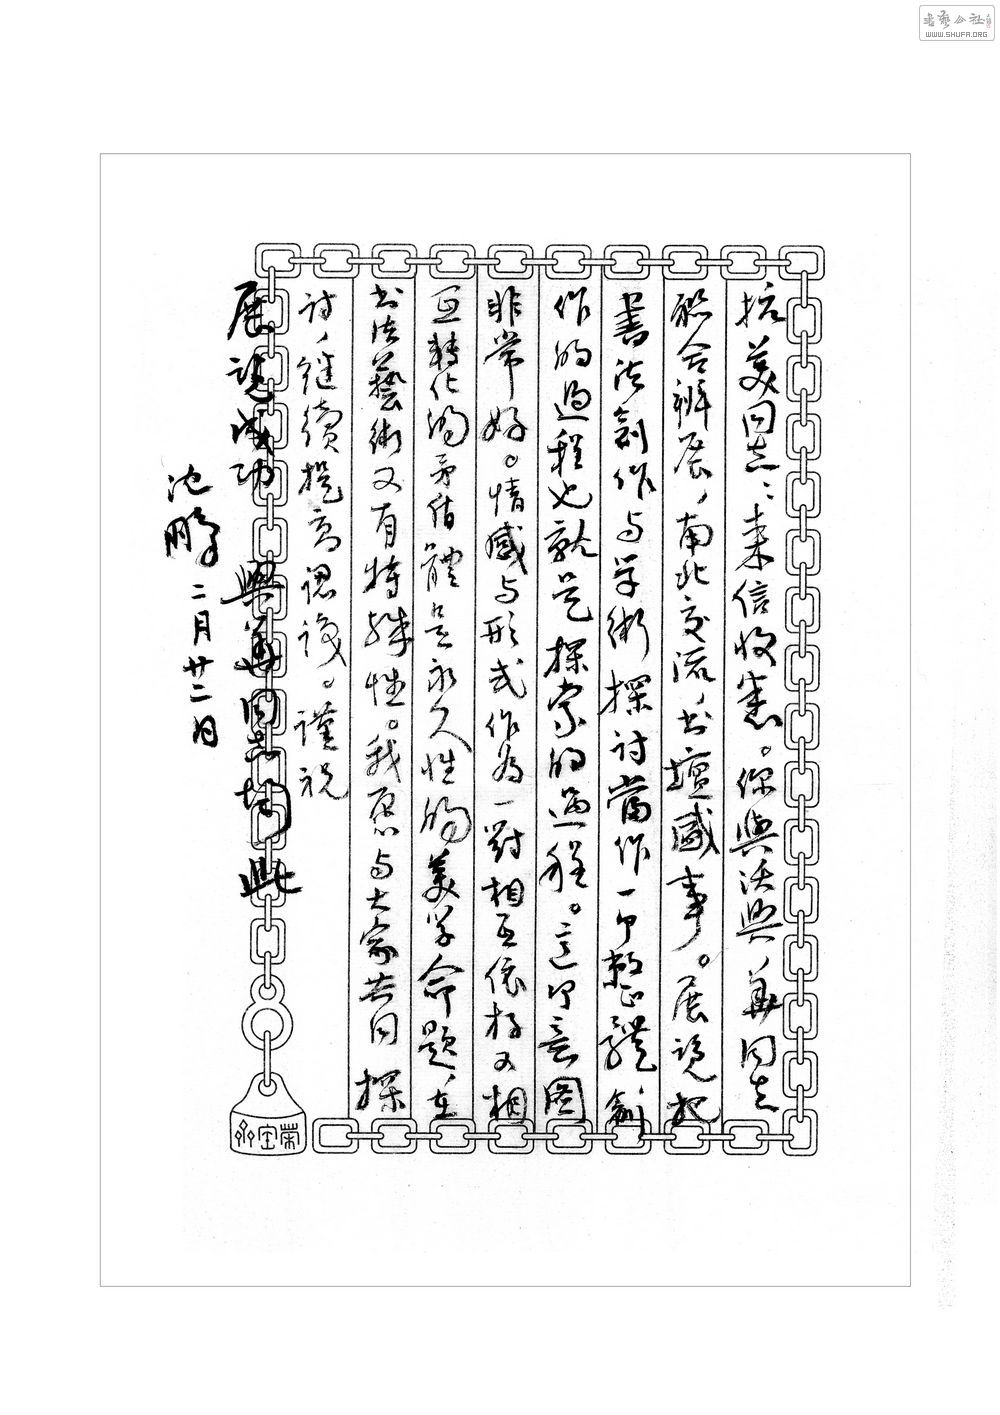 抗美同志：来信收悉。你與沃興華同志
聯合辦展，南北交流，书壇盛事。展览把
書法創作与学術探討當作一个整體，創
作的過程也就是探索的過程。這个意圖
非常好。情感与形式作为一對相互依存又相
互轉化的矛盾體是永久性的美学命題，在
书法藝術又有特殊性。我愿与大家共同探
讨，继續提高認識。谨祝
展览成功 興華同志均此
沈鹏
二月廿二日
荣宝斋
书艺公社
WWW.SHUFA.ORG